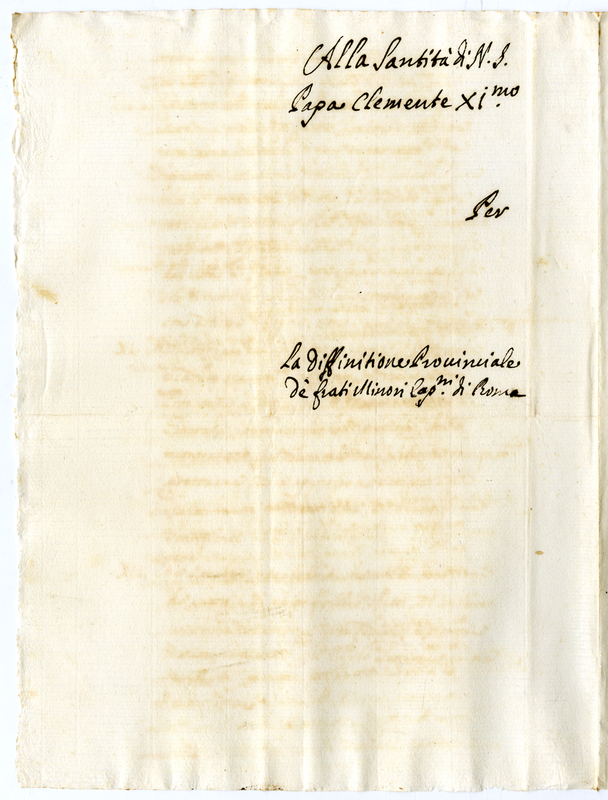 Alla Santità di N. S.
Papa Clemente XI.mo
Per
La Diffinitione Prouinciale
dè frati Minori Cap.ni di Roma